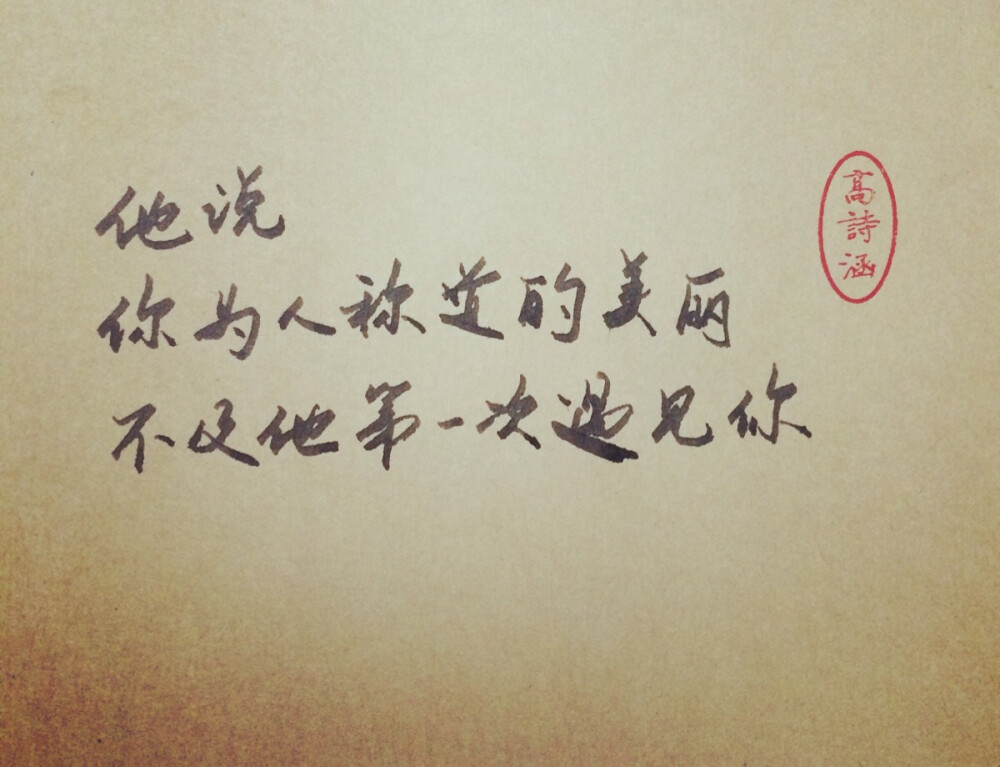 他说
你为人称道的美丽
不及他第一次遇见你
高詩涵